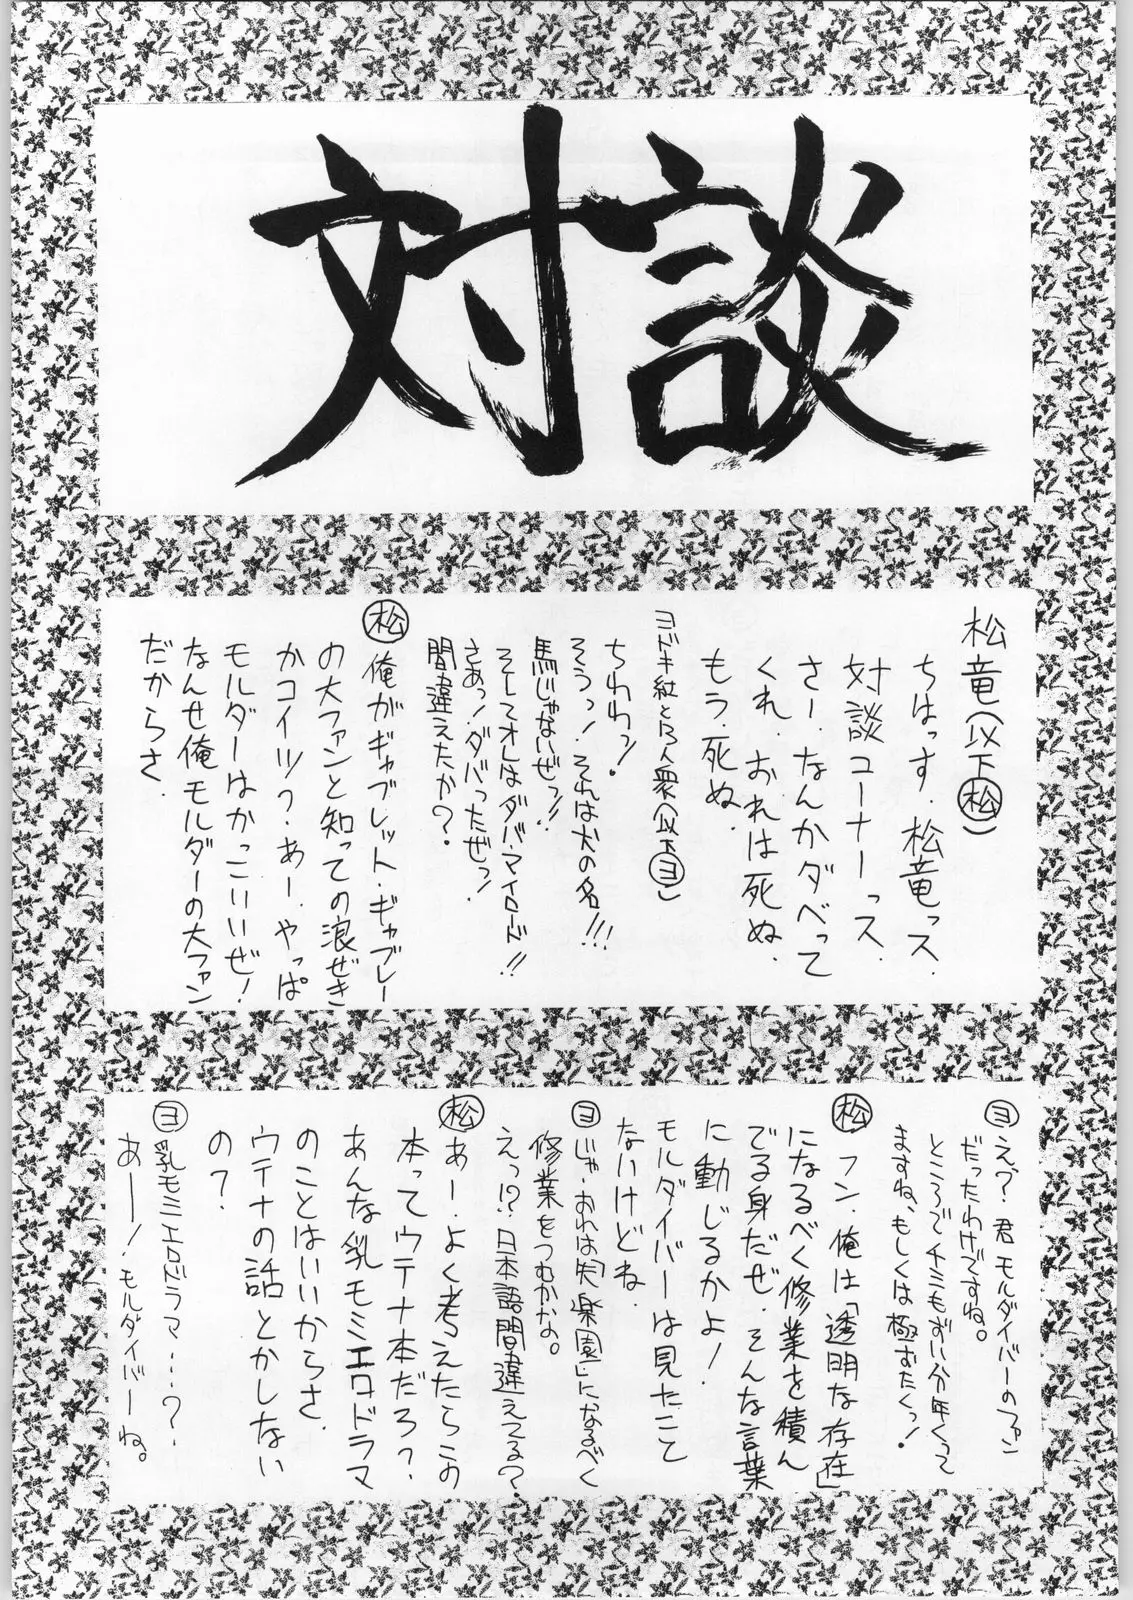 対談
松竜(以下松)
ちはっす.松竜っス.
対談コーナーっス
さー.なんかダベって
くれ.おれは死ぬ.
もう.死ぬ.
ヨドキ紅とろ人衆(以下ヨ)
ちわわっ!
そうっ!それは犬の名!!!
馬じゃないぜっ!!
そしてオレはダバ・マイロード!!
さあっ!ダバったぜっ!
間違えたか?.
松 俺がギャブレット・ギャブレー
の大ファンと知っての浪ぜき
かコイツ?.あー.やっぱ
モルダーはかっこいいぜ!
なんせ俺モルダーの大ファン
だからさ.
ヨ えっ?.君モルダイバーのファン
だったわけですね。
ところでチミもずい分年くって
ますね、もしくは極ずたくっ!
松 フン.俺は「透明な存在」
になるべく修業を積ん
でる身だぜ.そんな言葉
に動じるかよ!
モルダイバーは見たこと
ないけどね.
ヨ じゃ・おれは「失楽園」になるべく
修業をつむかな。
えっ!?日本語間違えてる?.
松 あー.よく考えたらこの
本ってウテナ本だろ?.
あんな乳モミエロドラマ
のことはいいからさ.
ウテナの話とかしない
の?.
ヨ 乳モミエロドラマ……?.
あー!モルダイバーね。